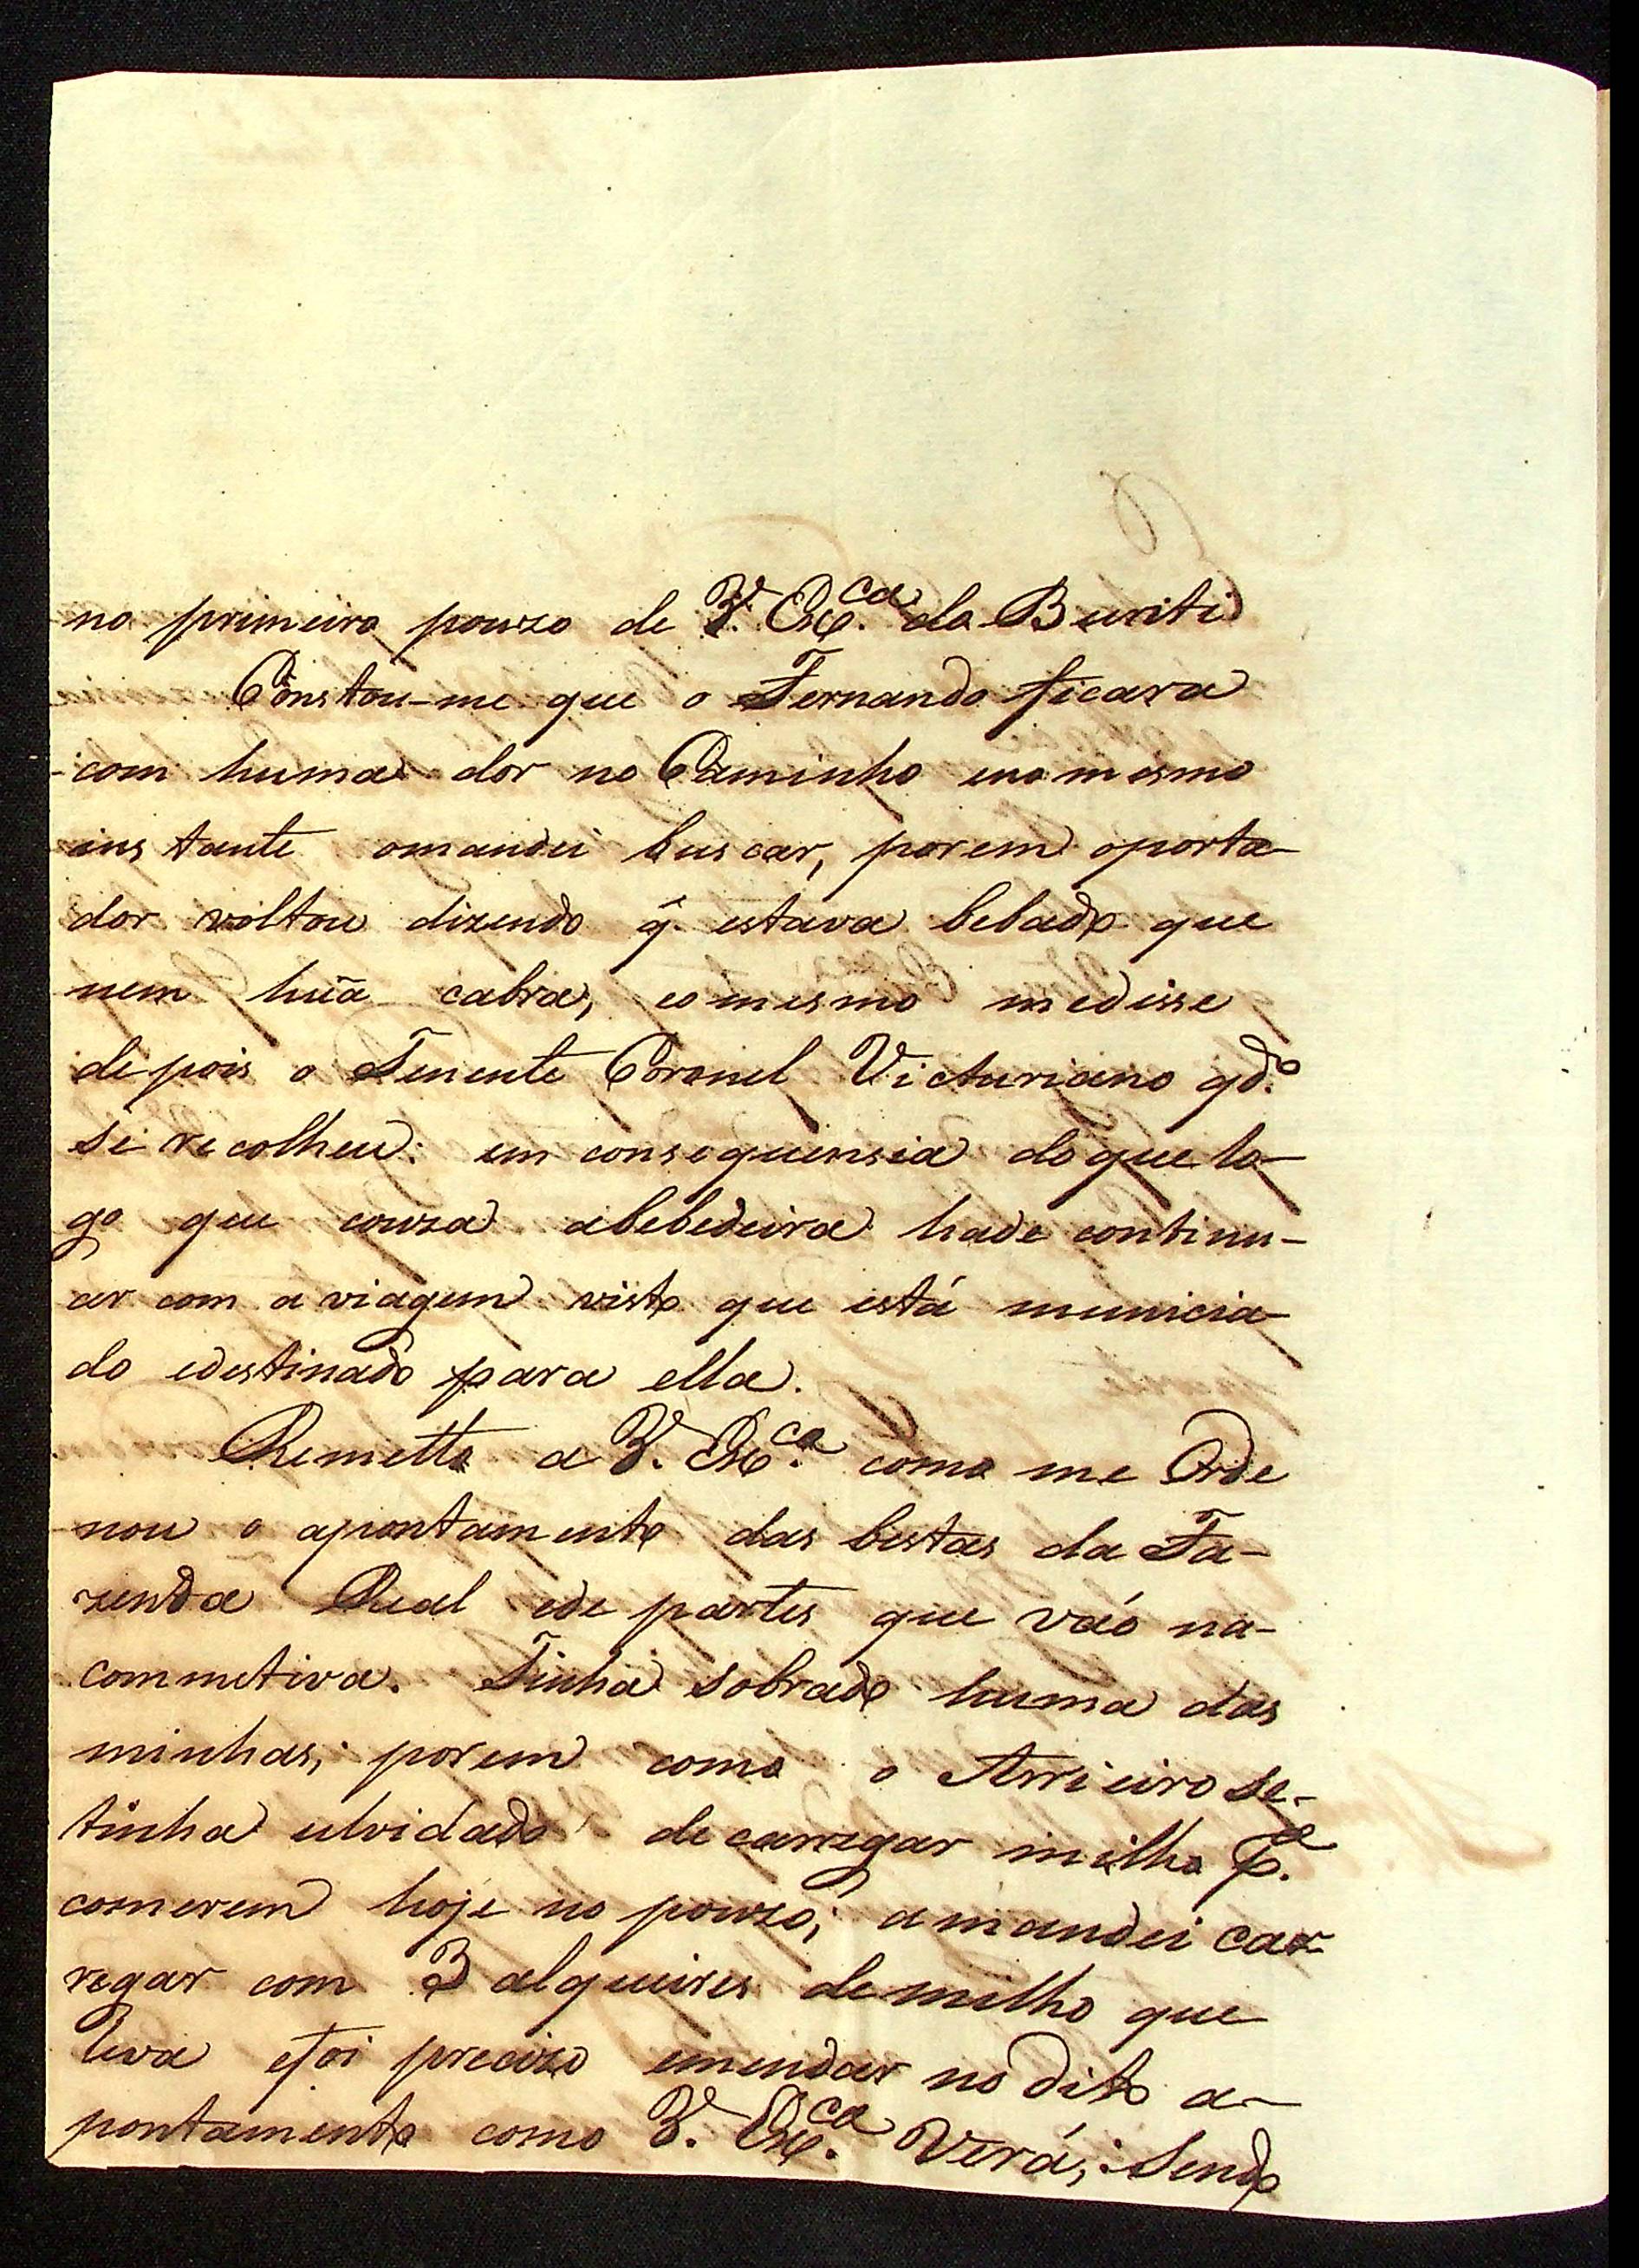 no primeiro pouzo de V. Ex.ca do Buriti
Constou-me que o Fernando ficara
com huma dor no Caminho eno mesmo
instante omandei buscar, porem oporta-
dor voltou dizendo q̃ estava bebado que
nem hũa cabra, eomesmo medisse
depois o Tenente Coronel Victuriano qdo.
se recolheu: em consequensia doque lo-
go que couza abebedeira hade continu-
ar com aviagem visto que está municia-
do edestinado para ella.
Remetto a V. Ex.ca como me Orde
nou o apontamento das bestas da Fa-
zenda Real ede partes que váo na-
commetiva. Tinha sobrado huma das
minhas; porem como o Arrieiro se-
tinha ulvidado decarregar milho p.a
comerem hoje no pouzo; amandei car-
regar com 3 alqueires demilho que
leva efoi precizo emendar no dito a-
pontamento como V. Ex.ca Verá; Sendo